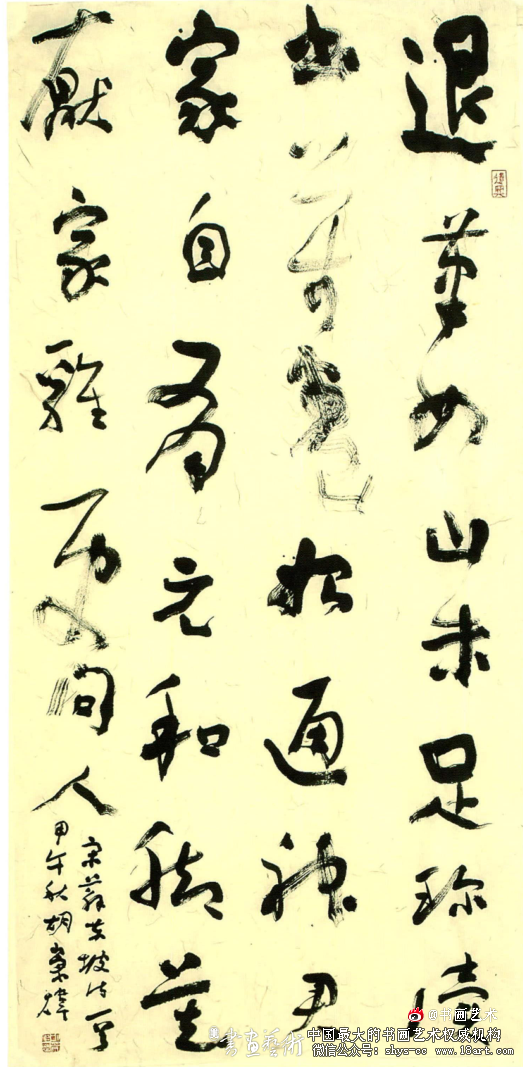 退筆如山未足珍讀
書萬卷始通神君
家自有元和腳莫
厭家雞更問人
宋蘇東坡诗一首
甲午秋胡崇煒
@书画艺术
書畫藝術
中国最大的书画艺术权威机构
微信公众号: shys-cc www.18art.com